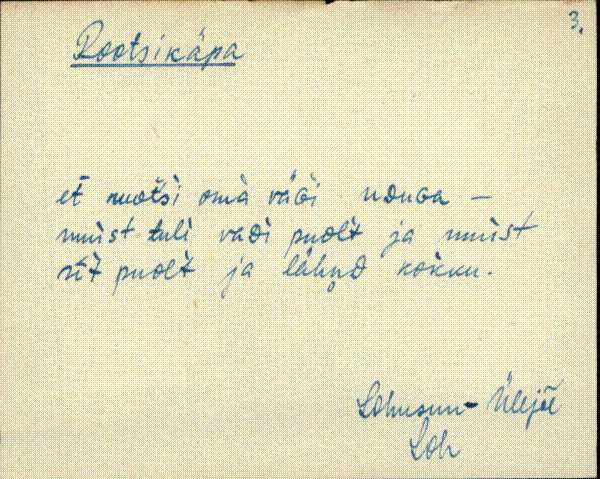 3.
Rootsikäpa
et ruotsi omà vägi uduga –
muist tuli vadi puolt ja muist
siit puolt ja lähnd kokku.
Lohusuu – Ülejõe
Loh